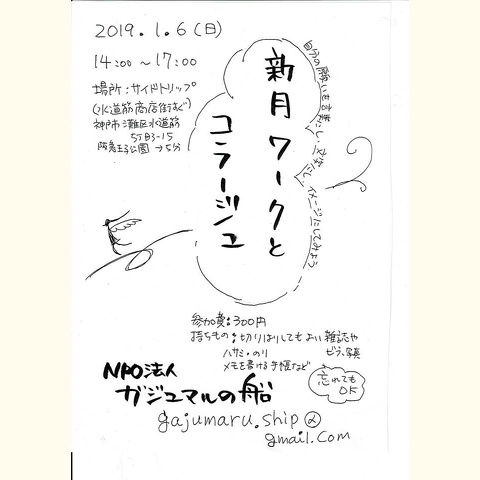 2019.1.6(日)
14:00～17:00
場所：サイドトリップ
(水道筋商店街など)
神戸市灘区水道筋
5丁目3-15
阪急王子公園→5分
新月ワークと
コラージュ
自分の願いを言葉にし、文字にし、イメージにしてみよう
参加費：300円
持ちもの：切りはりしてもよい雑誌や
ビラ、写真
ハサミ・のり
メモを書ける手帳など
忘れても
OK
NPO法人
ガジュマルの船
gajumaru.ship@
gmail.com